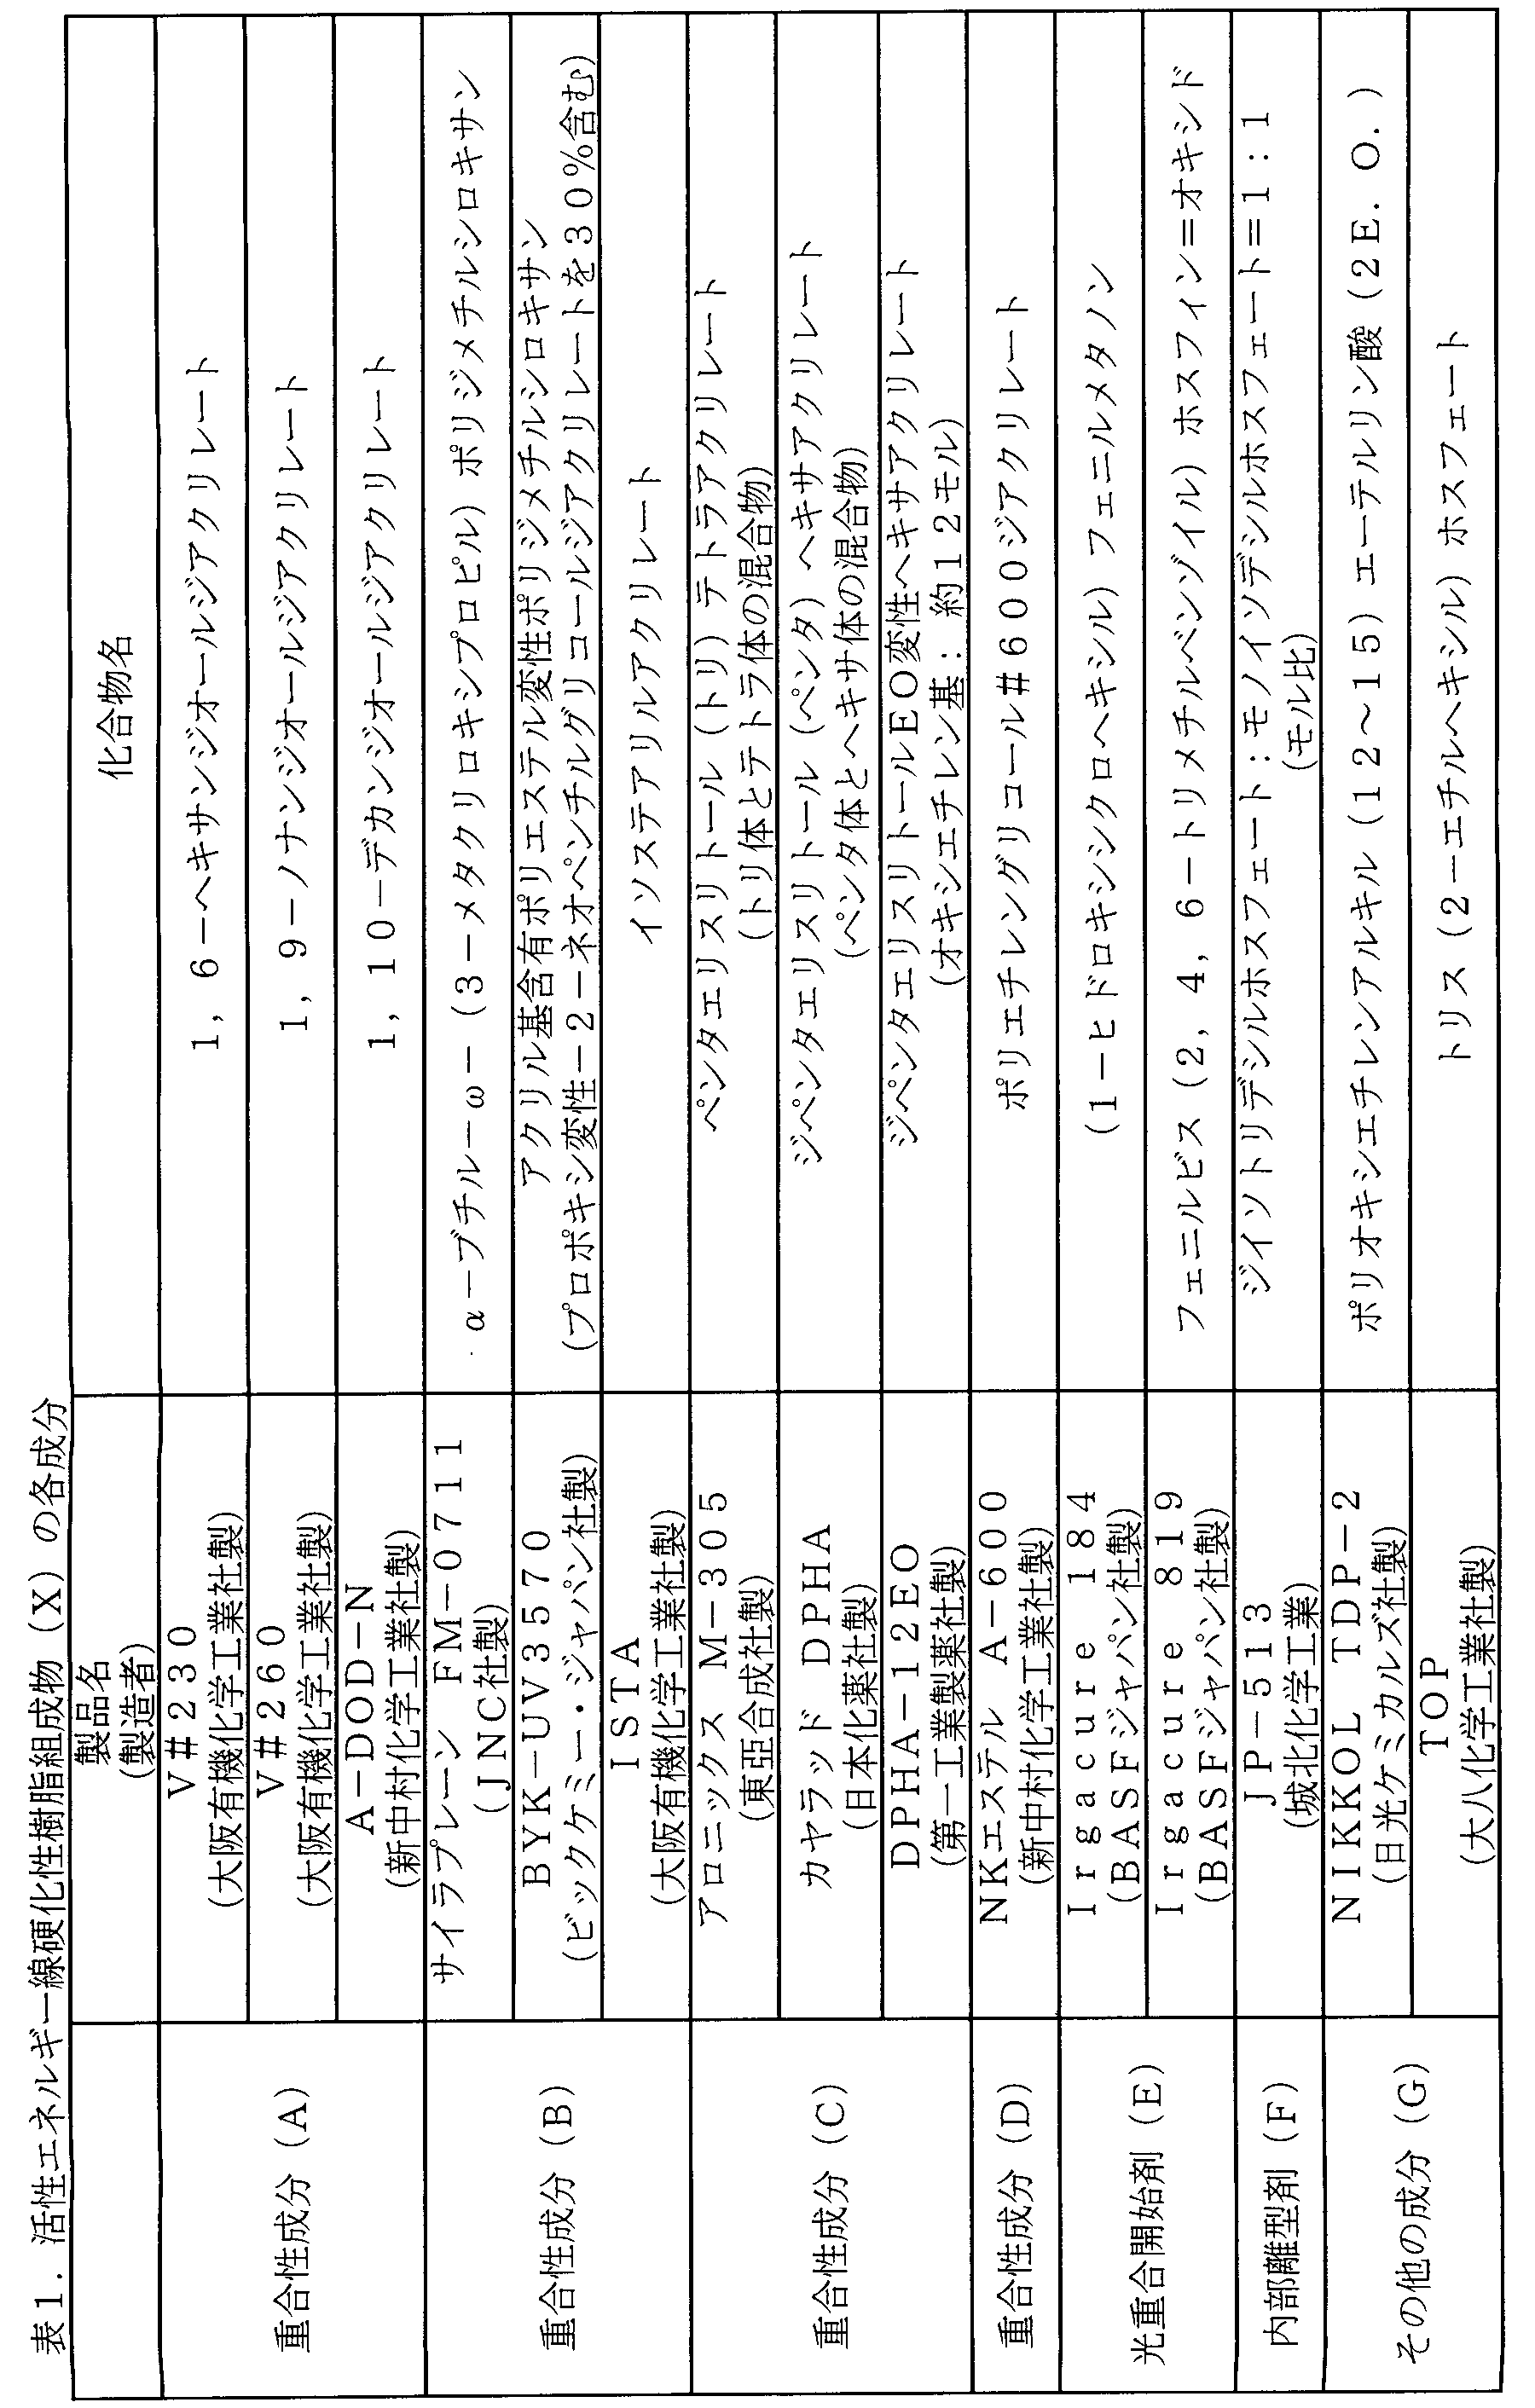 表１．活性エネルギー線硬化性樹脂組成物（Ｘ）の各成分
製品名
(製造者)
化合物名
重合性成分（Ａ）
Ｖ＃２３０
(大阪有機化学工業社製)
１，６－ヘキサンジオールジアクリレート
Ｖ＃２６０
(大阪有機化学工業社製)
１，９－ノナンジオールジアクリレート
Ａ－ＤＯＤ－Ｎ
(新中村化学工業社製)
１，１０－デカンジオールジアクリレート
重合性成分（Ｂ）
サイラプレーン　ＦＭ－０７１１
(ＪＮＣ社製)
α－ブチル－ω－（３－メタクリロキシプロピル）ポリジメチルシロキサン
ＢＹＫ－ＵＶ３５７０
(ビックケミー・ジャパン社製)
アクリル基含有ポリエステル変性ポリジメチルシロキサン
(プロポキシ変性－２－ネオペンチルグリコールジアクリレートを３０％含む)
ＩＳＴＡ
(大阪有機化学工業社製)
イソステアリルアクリレート
重合性成分（Ｃ）
アロニックス　Ｍ－３０５
(東亞合成社製)
ペンタエリスリトール（トリ）テトラアクリレート
(トリ体とテトラ体の混合物)
カヤラッド　ＤＰＨＡ
(日本化薬社製)
ジペンタエリスリトール（ペンタ）ヘキサアクリレート
(ペンタ体とヘキサ体の混合物)
ＤＰＨＡ－１２ＥＯ
(第一工業製薬社製)
ジペンタエリスリトールＥＯ変性ヘキサアクリレート
(オキシエチレン基：約１２モル)
重合性成分（Ｄ）
ＮＫエステル　Ａ－６００
(新中村化学工業社製)
ポリエチレングリコール＃６００ジアクリレート
光重合開始剤（Ｅ）
Ｉｒｇａｃｕｒｅ　１８４
(ＢＡＳＦジャパン社製)
（１－ヒドロキシシクロヘキシル）フェニルメタノン
Ｉｒｇａｃｕｒｅ　８１９
(ＢＡＳＦジャパン社製)
フェニルビス（２，４，６－トリメチルベンゾイル）ホスフィン＝オキシド
内部離型剤（Ｆ）
ＪＰ－５１３
(城北化学工業)
ジイソトリデシルホスフェート：モノイソデシルホスフェート＝１：１
(モル比)
その他の成分（Ｇ）
ＮＩＫＫＯＬ　ＴＤＰ－２
(日光ケミカルズ社製)
ポリオキシエチレンアルキル（１２～１５）エーテルリン酸（２Ｅ．Ｏ．）
ＴＯＰ
(大八化学工業社製)
トリス（２－エチルヘキシル）ホスフェート